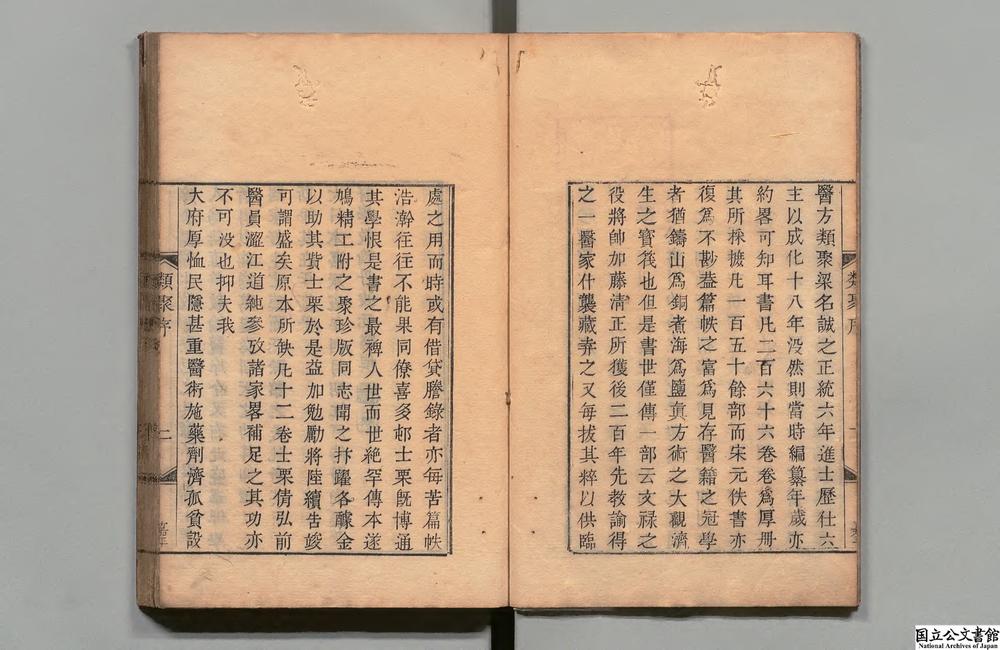 醫方類聚梁名誠之正統六年進士歷仕六
主以成化十八年沒然則當時編纂年歲亦
約畧可知耳書凡二百六十六卷卷爲厚冊
其所採摭凡一百五十餘部而宋元佚書亦
復爲不尠蓋篇帙之富爲見存醫籍之冠學
者猶鑄山爲銅煮海爲鹽眞方術之大觀濟
生之寶筏也但是書世僅傳一部云文祿之
役將帥加藤淸正所獲後二百年先教諭得
之一醫家什襲藏弆之又每拔其粹以供臨
類聚序
處之用而時或有借貸謄錄者亦每苦篇帙
浩瀚往往不能果同僚喜多邨士栗旣博通
其學恨是書之最裨人世而世絶罕傳本遂
鳩精工附之聚珍版同志聞之抃躍各醵金
以助其貲士栗於是益加勉勵將陸續告竣
可謂盛矣原本所缺凡十二卷士栗倩弘前
醫員澀江道純參攷諸家畧補足之其功亦
不可沒也抑夫我
大府厚恤民隱甚重醫術施藥劑濟孤貧設
類聚序
二
国立公文書館
National Archives of Japan